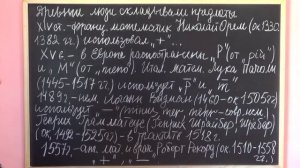 Древние люди складывали предметы
XIVст.-франц. математик Николай Орем (ок. 1330-
1382 гг.) использовал
XVв - в Европе распространены „P"(от
и „M"(от „meno"). Итал. матем. Лука Пачоли
(1445-1517 гг) использует „p" и „m"
1489г.-нем. Иоганн Видман (1460-ок 1505гг)
использует
Генрих Грамматеус (Генрих Шрайбер)
(ок. 1492-1525гг)-в трактате 1518г.
1557г-анг. мат и врач Роберт Рекорд(ок 1510-1558
„+" „—"